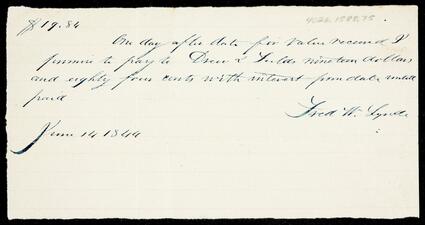 $19.84
4026.1588.75
One day after date for value received I
promise to pay to Drew & Fields nineteen dollars
and eighty four cents with interest from date untill
paid
Fred W. Lynde
June 14 1844